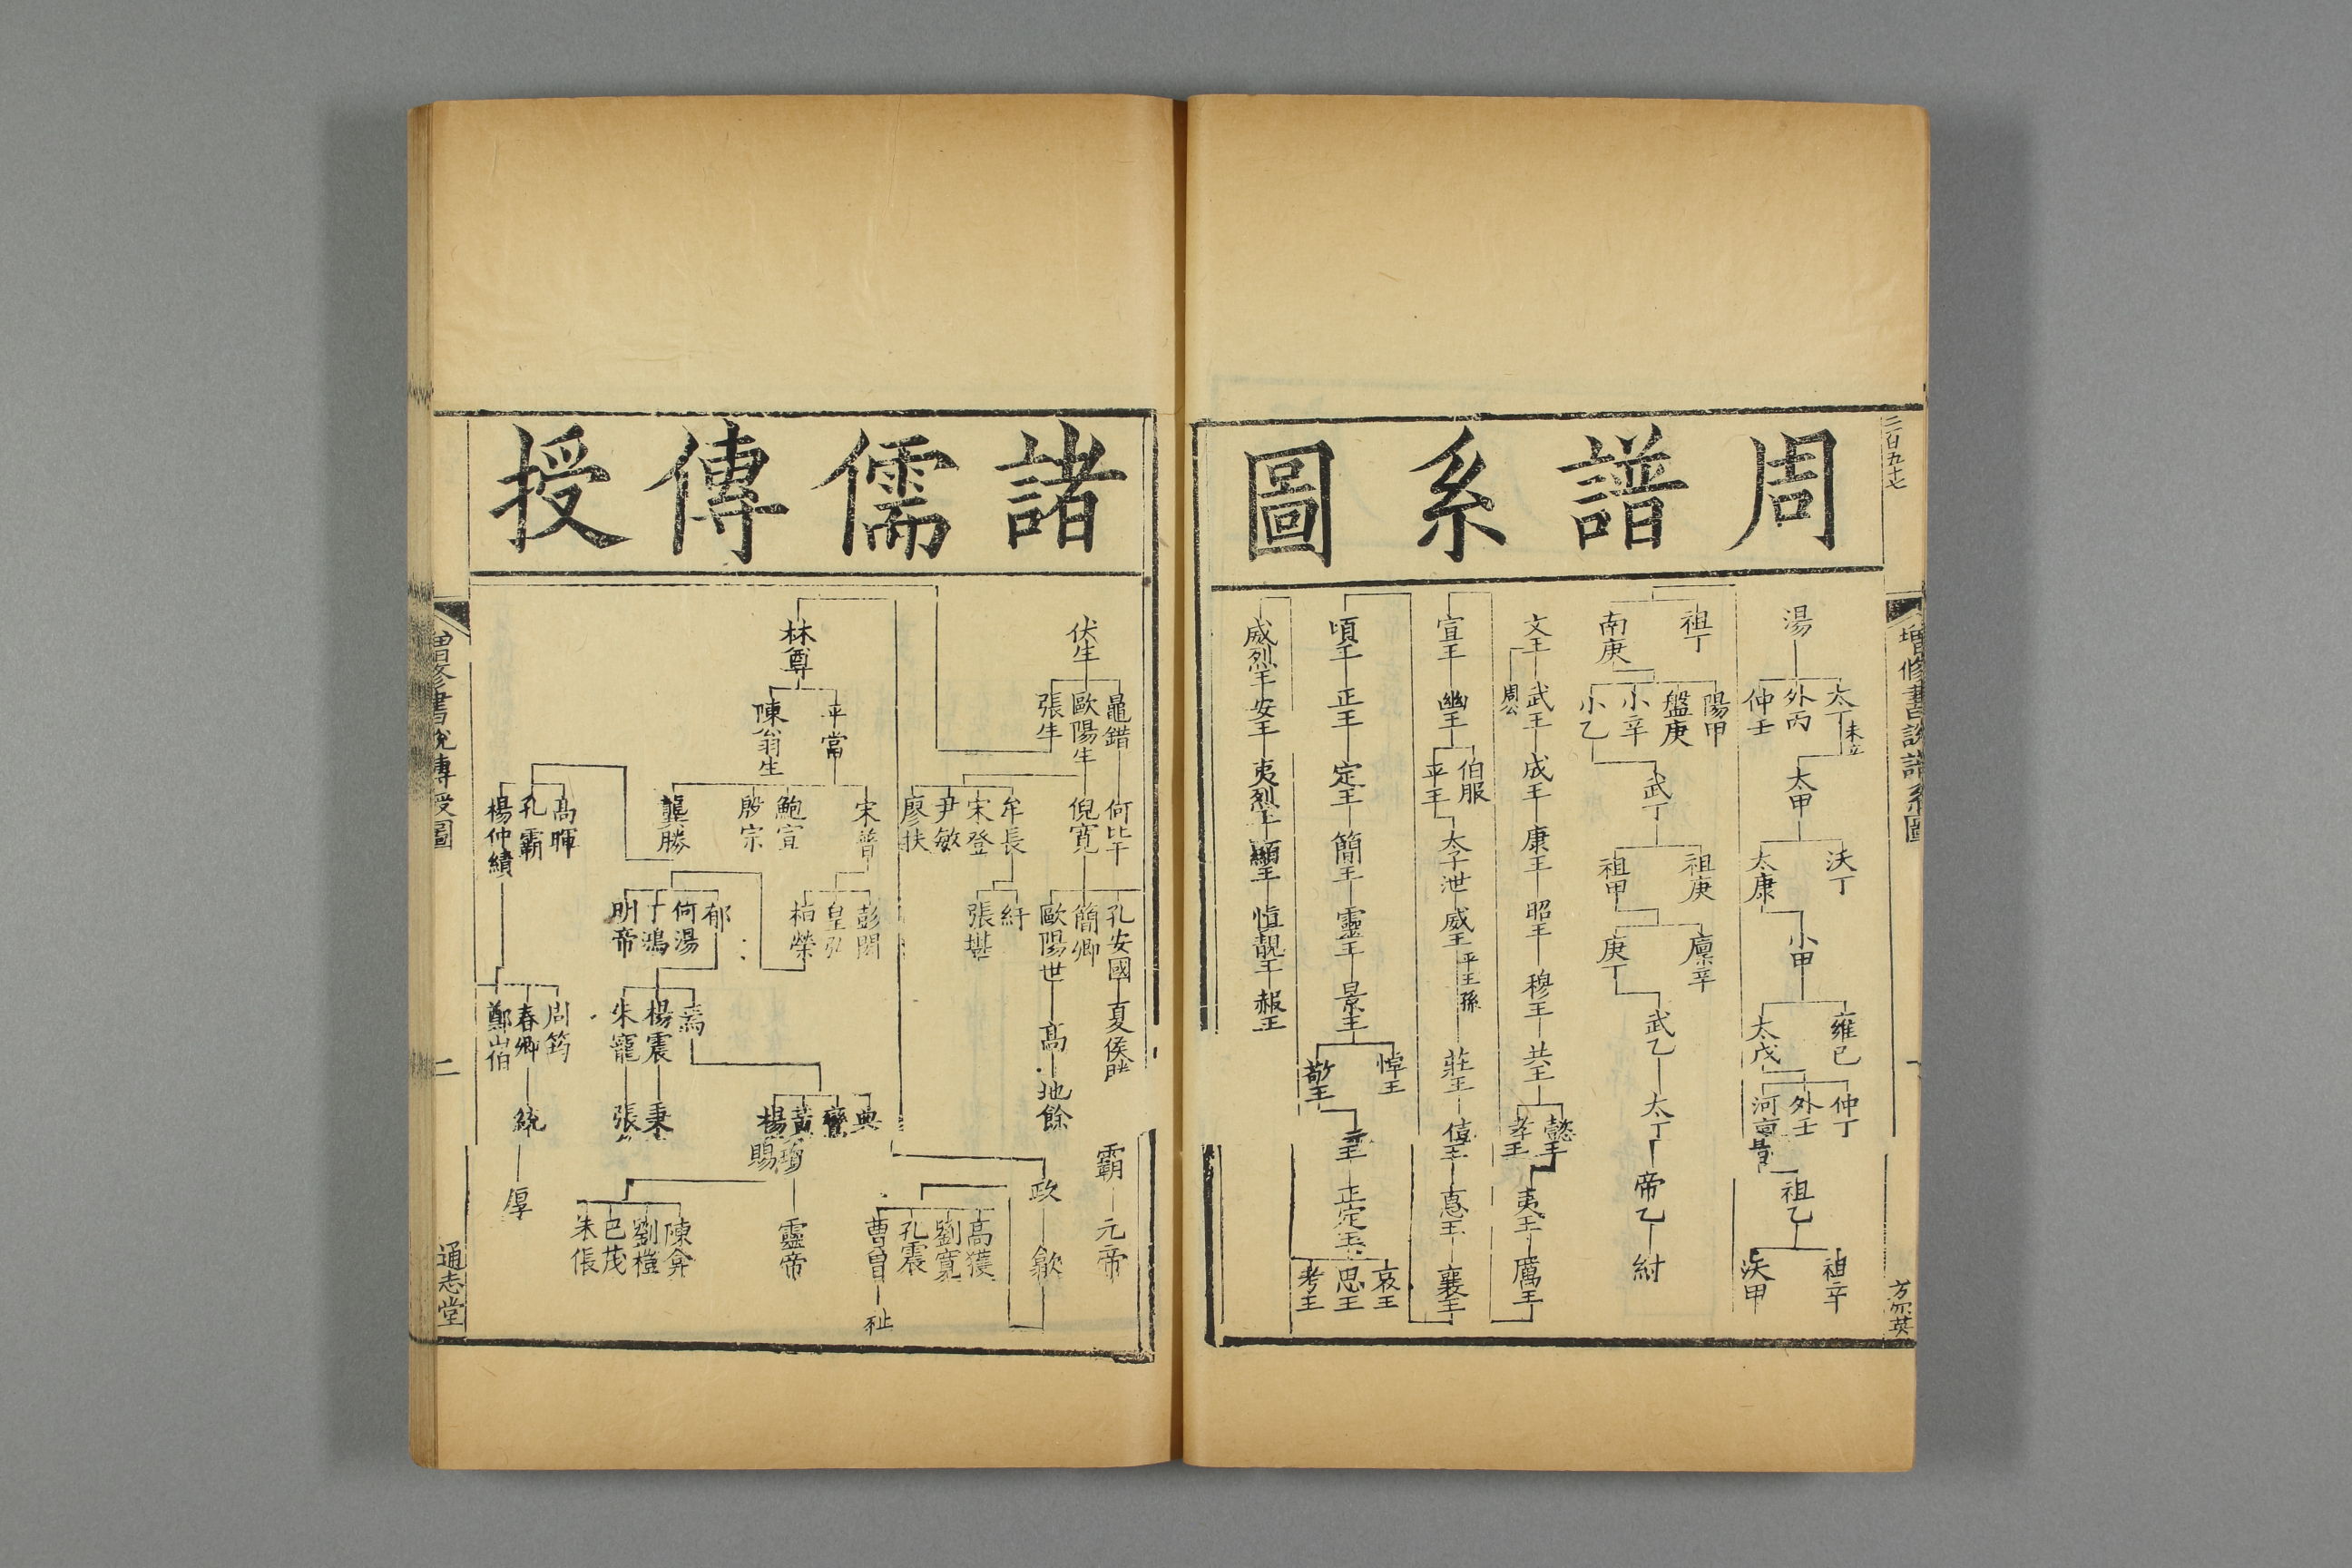 周譜系圖
二百五十七
增修書說譜系圖
方惢英
湯
太丁 未立
外丙
仲壬
太甲
沃丁
太康
小甲
雍已
太戊
仲丁
外壬
河亶甲
祖乙
祖辛
沃甲
祖丁
南庚
陽甲
盤庚
小辛
小乙
武丁
祖庚
祖甲
廩辛
庚丁
武乙
太丁
帝乙
紂
文王
武王
周公
成王
康王
昭王
穆王
共王
懿王
孝王
夷王
厲王
宣王
幽王
伯服
平王
太子泄
威王 平王孫
莊王
僖王
惠王
襄王
頃王
正王
定王
簡王
靈王
景王
悼王
敬王
元王
正定王
哀王
思王
考王
威烈王
安王
夷烈王
顯王
慎靚王
赧王
諸儒傳授
伏生
鼂錯
歐陽生
張生
何比干
倪寬
牟長
宋登
尹敏
廖扶
孔安國
簡卿
歐陽世
紆
張堪
夏侯
高
地餘
霸
元帝
政
歙
高獲
劉寬
孔震
曹曾
祉
林尊
平當
陳翁生
宋普
鮑宣
殷宗
龔勝
彭閎
皇弘
桓榮
郁
何湯
丁鴻
明帝
焉
楊震
朱寵
秉
張
典
黃瓊
楊賜
靈帝
陳弇
劉愷
巴茂
朱倀
高暉
孔霸
楊仲續
周筠
春卿
鄭山伯
統
厚
增修書說傳授圖
二
通志堂